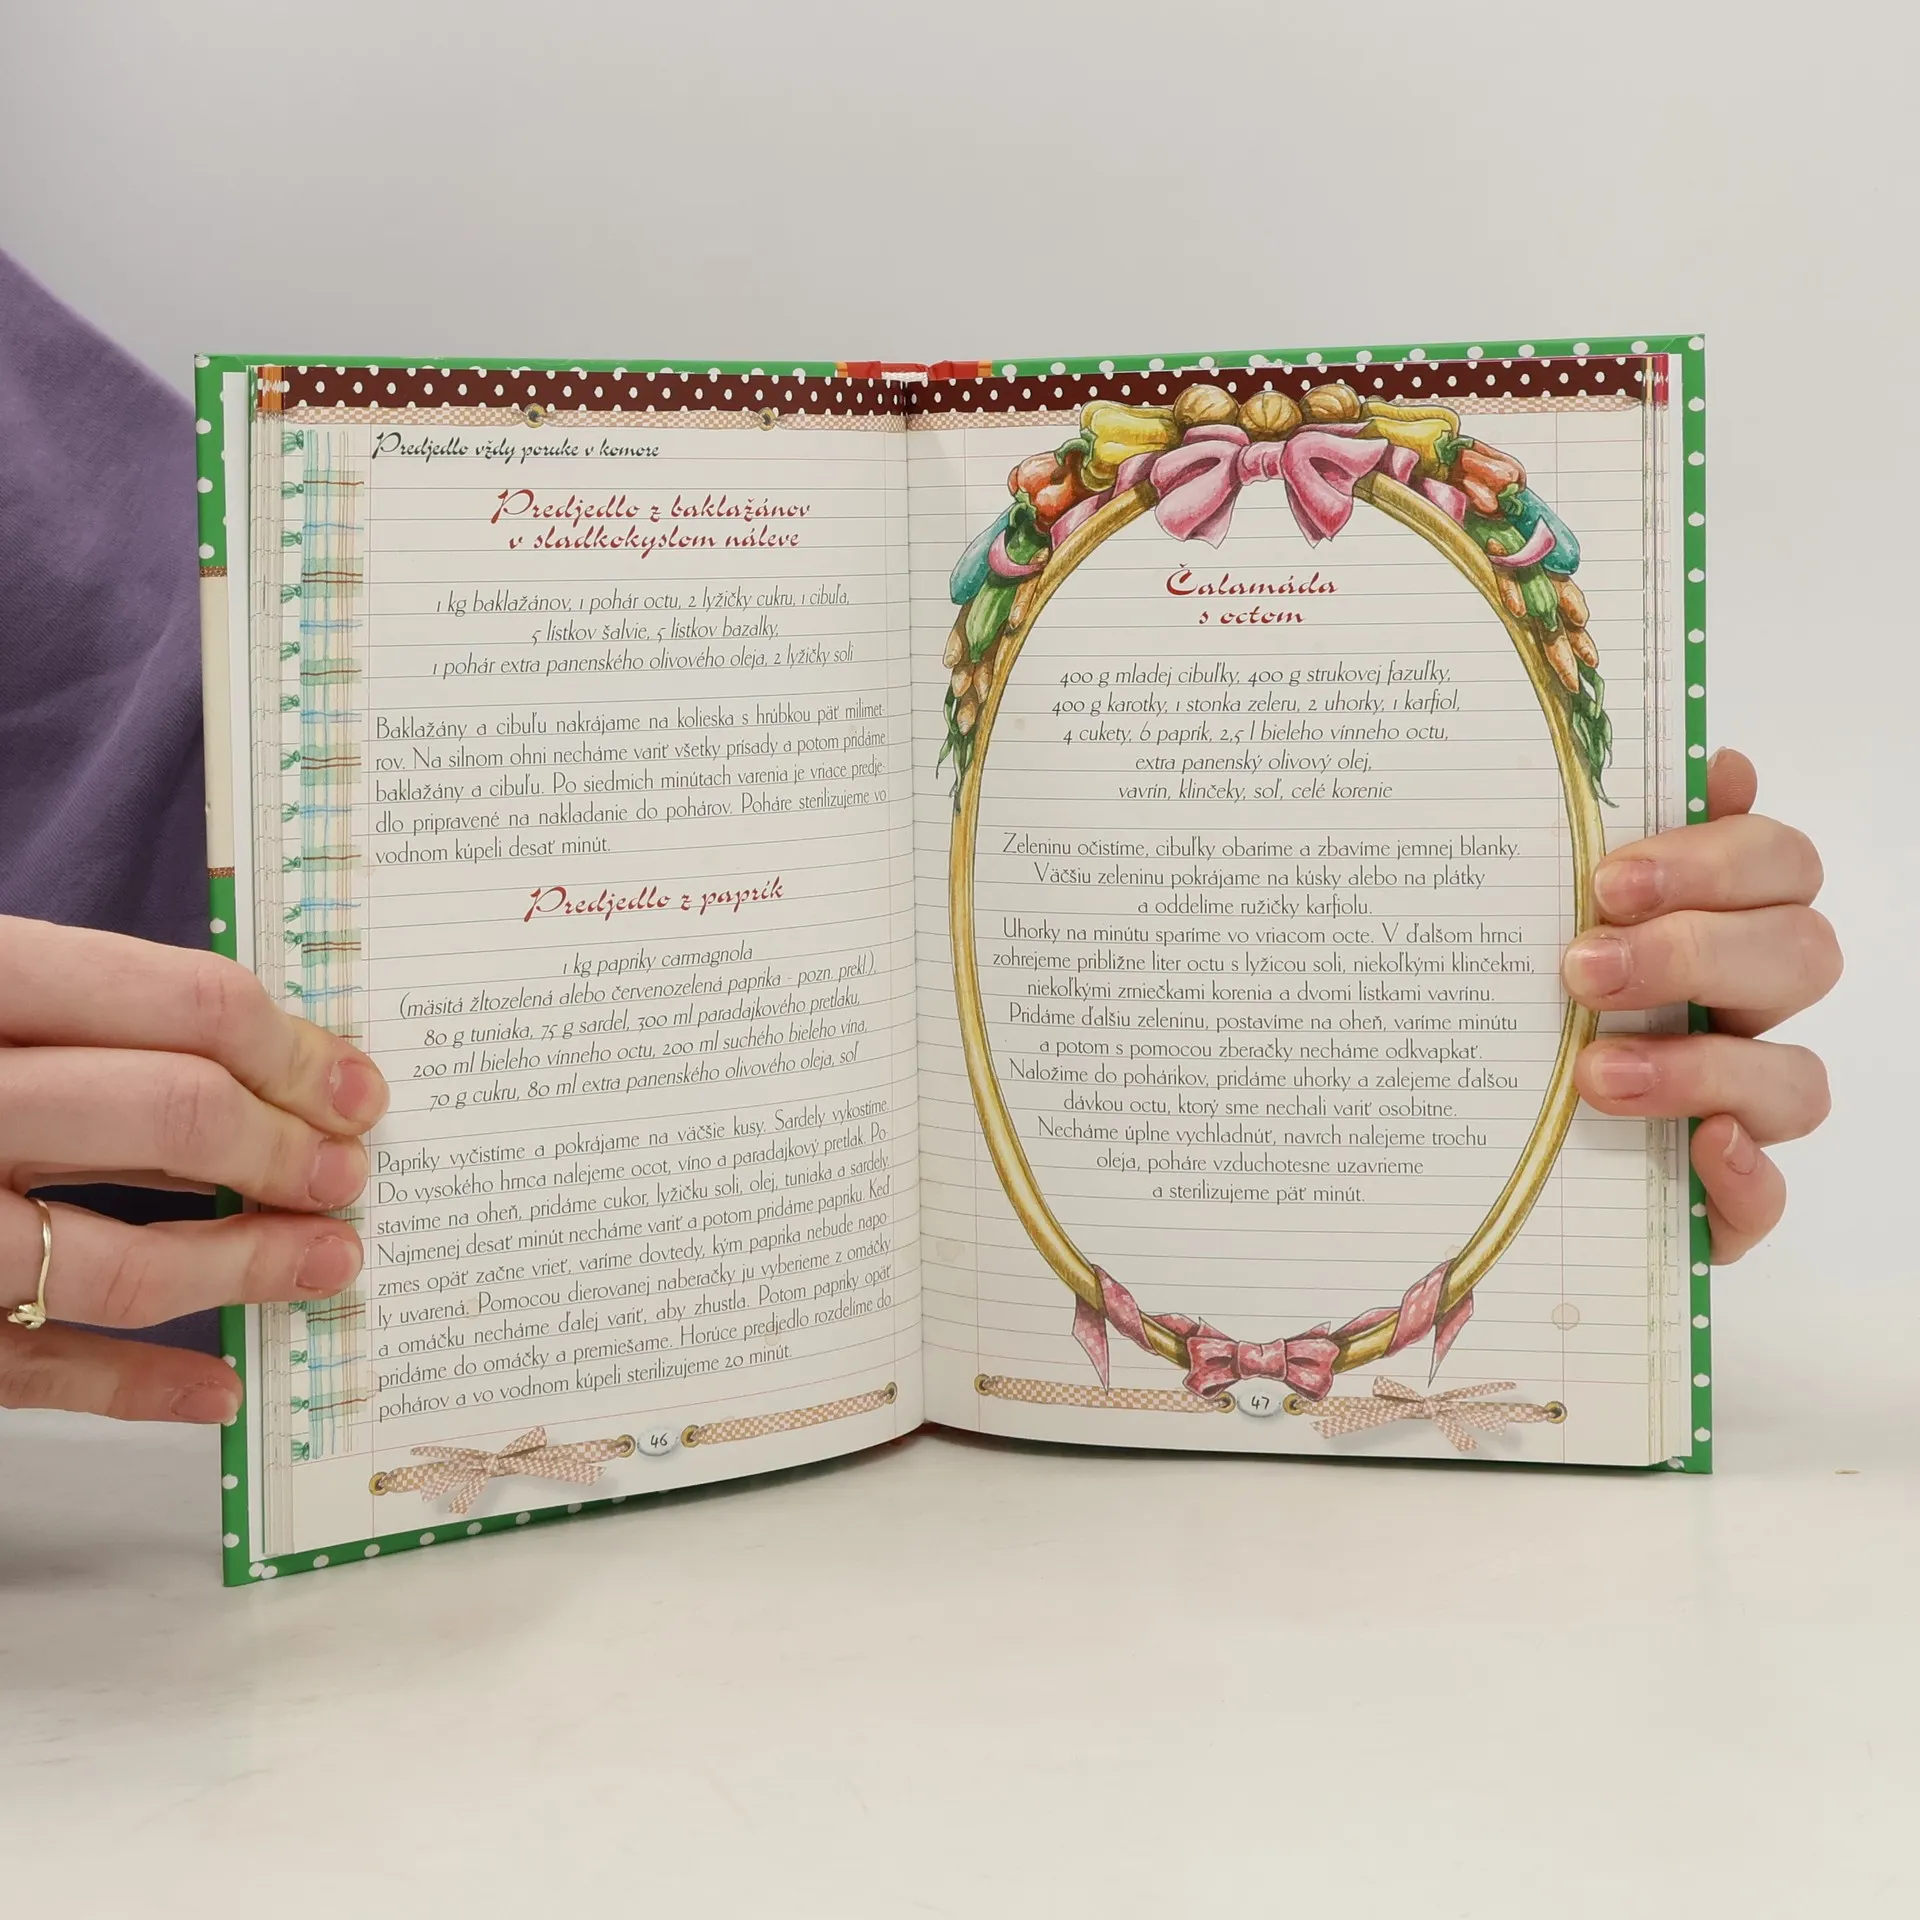 Predjedlo vždy poruke v komore
Predjedlo z baklažánov
v sladkokyslom náleve
1 kg baklažánov, 1 pohár octu, 2 lyžičky cukru, 1 cibuľa,
5 lístkov šalvie, 5 lístkov bazalky,
1 pohár extra panenského olivového oleja, 2 lyžičky soli
Baklažány a cibuľu nakrájame na kolieska s hrúbkou päť milimet-
rov. Na silnom ohni necháme variť všetky prísady a potom pridáme
baklažány a cibuľu. Po siedmich minútach varenia je vriace predje-
dlo pripravené na nakladanie do pohárov. Poháre sterilizujeme vo
vodnom kúpeli desať minút.
Predjedlo z paprík
1 kg papriky carmagnola
(mäsitá žltozelená alebo červenozelená paprika - pozn. prekl.),
80 g tuniaka, 75 g sardel, 300 ml paradajkového pretlaku,
200 ml bieleho vínneho octu, 200 ml suchého bieleho vína,
70 g cukru, 80 ml extra panenského olivového oleja, soľ
Papriky vyčistíme a pokrájame na väčšie kusy. Sardely vykostíme.
Do vysokého hrnca nalejeme ocot, víno a paradajkový pretlak. Po-
stavíme na oheň, pridáme cukor, lyžičku soli, olej, tuniaka a sardely.
Najmenej desať minút necháme variť a potom pridáme papriku. Keď
zmes opäť začne vrieť, varíme dovtedy, kým paprika nebude napo-
ly uvarená. Pomocou dierovanej naberačky ju vyberieme z omáčky
a omáčku necháme ďalej variť, aby zhustla. Potom papriky opäť
pridáme do omáčky a premiešame. Horúce predjedlo rozdelíme do
pohárov a vo vodnom kúpeli sterilizujeme 20 minút.
46
Čalamáda
s octom
400 g mladej cibuľky, 400 g strukovej fazuľky,
400 g karotky, 1 stonka zeleru, 2 uhorky, 1 karfiol,
4 cukety, 6 paprík, 2,5 l bieleho vínneho octu,
extra panenský olivový olej,
vavrín, klinčeky, soľ, celé korenie
Zeleninu očistíme, cibuľky obaríme a zbavíme jemnej blanky.
Väčšiu zeleninu pokrájame na kúsky alebo na plátky
a oddelíme ružičky karfiolu.
Uhorky na minútu sparíme vo vriacom octe. V ďalšom hrnci
zohrejeme približne liter octu s lyžicou soli, niekoľkými klinčekmi,
niekoľkými zrniečkami korenia a dvomi lístkami vavrínu.
Pridáme ďalšiu zeleninu, postavíme na oheň, varíme minútu
a potom s pomocou zberačky necháme odkvapkať.
Naložíme do pohárikov, pridáme uhorky a zalejeme ďalšou
dávkou octu, ktorý sme nechali variť osobitne.
Necháme úplne vychladnúť, navrch nalejeme trochu
oleja, poháre vzduchotesne uzavrieme
a sterilizujeme päť minút.
47